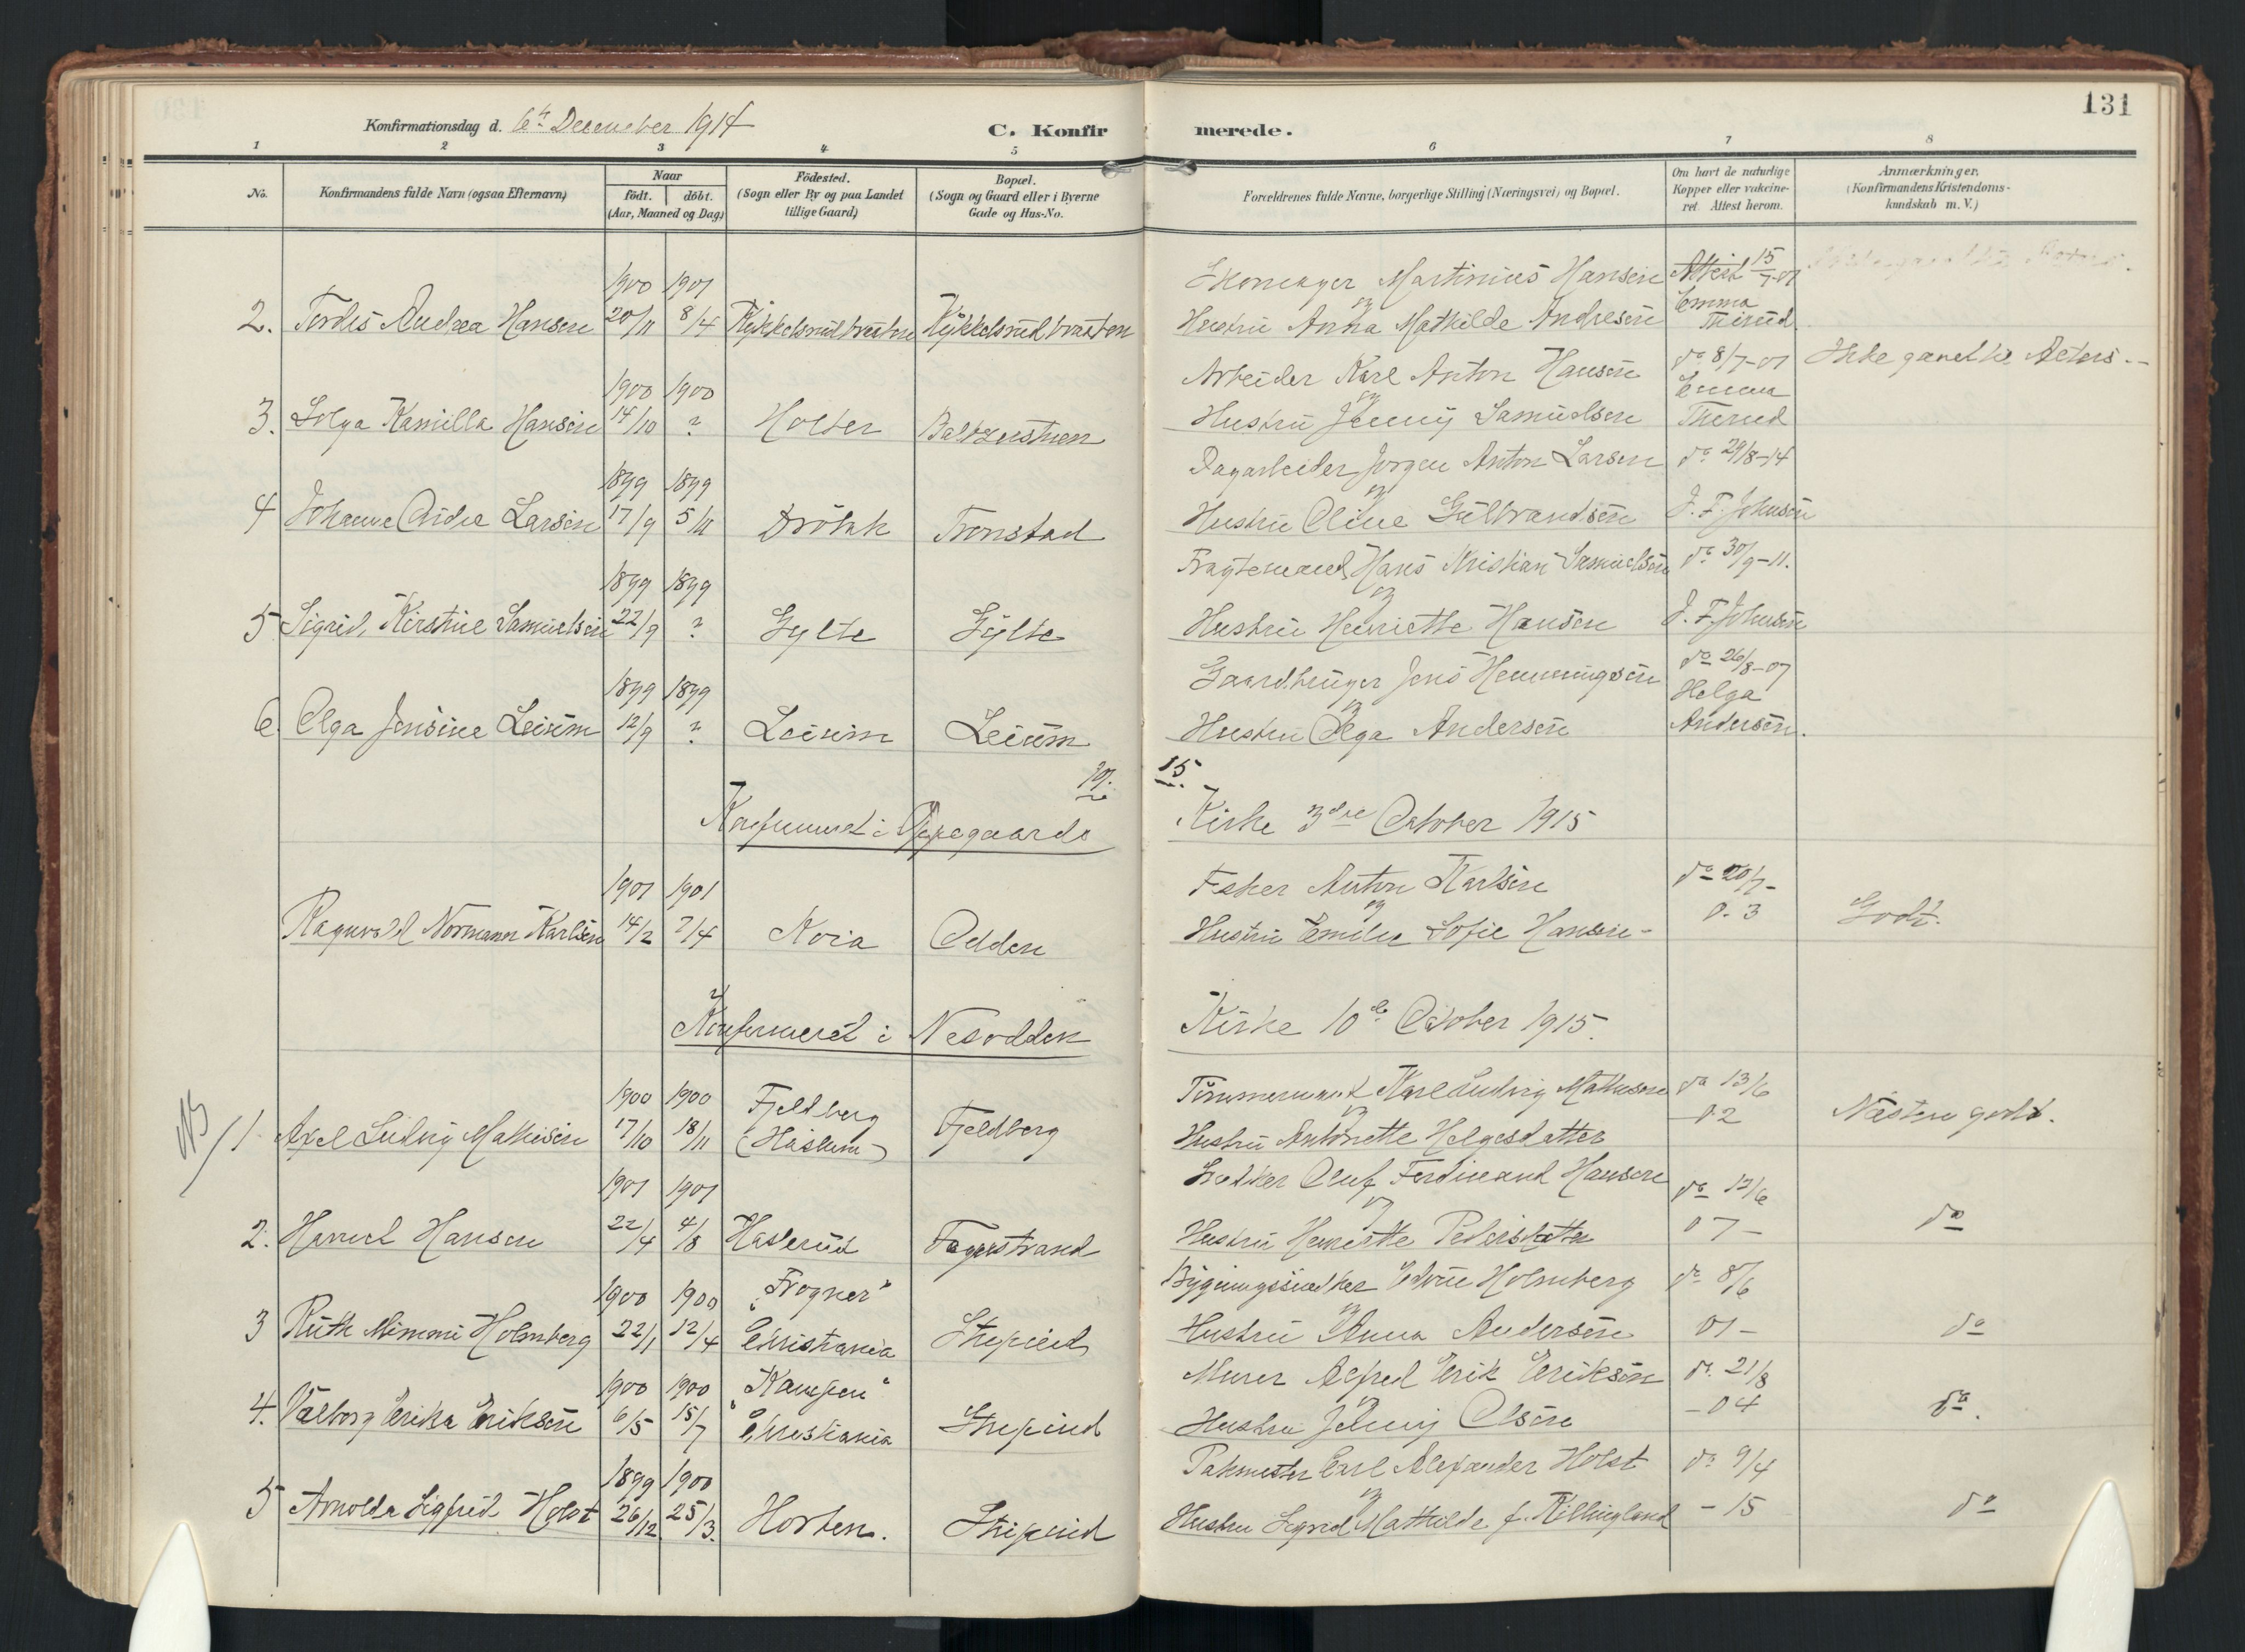 131
Konfirmationsdag d. 6te December 1914
C. Konfirmerede.
1 2 3 4 5 6 7 8
No.
Konfirmandens fulde Navn (ogsaa Efternavn)
Naar
födt. döbt.
(Aar, Maaned og Dag)
Födested.
(Sogn eller By og paa Landet
tillige Gaard)
Bopæl.
(Sogn og Gaard eller i Byerne
Gade og Hus-No.
Forældrenes fulde Navne, borgerlige Stilling (Næringsvei) og Bopæl.
Om havt de naturlige
Kopper eller vakcine-
ret Attest herom.
Anmærkninger.
(Konfirmandens Kristendoms-
kundskab m. V.)
1900 1901 Skomager Martinius Hansen Attest 15/7-01
2. Tordis Andrea Hansen 20/11 8/4 Kjykkelsrudbraaten Kjykkelsrudbraaten og Hustru Anna Mathilde Andresen Emma Therud
1900 1900 Arbeider Karl Anton Hansen do 8/7-01 Ikke gaaet til Alters.-
3. Solga Kamilla Hansen 14/10 ? Holter og Hustru Jenny Samuelsen Emma Therud
1899 1899 Dagarbeider Jørgen Anton Larsen do 29/8-14
4 Johanne Aida Larsen 17/9 5/11 Dröbak Tronstad og Hustru Oline Gulbrandsen J. F. Johnsen
1899 1899 Fragtemand Hans Kristian Samuelsen do 30/9-11.
5 Sigrid Kirstine Samuelsen 22/9 ? Gylte Gylte og Hustru Henriette Hansen J. F. Johnsen
1899 1899 Gaardbruger Jens Henningsen do 26/8-07
6. Olga Jensine Leirum 12/9 ? Leirum Leirum og Hustru Olga Andersen Helga Andersen.
15.
Konfirmeret i Oppegaards Kirke 3dre October 1915
1901 1901 Fisker Anton Karlsen do 20/7-
Ragnvald Normann Karlsen 14/2 7/4 Kroia Odden og Hustru Emilie Sofie Hansen - 0.3 Godt.
Konfirmeret i Nesodden Kirke 10de October 1915.
NB
1900 1900 Fjeldberg Tömmermand Karl Ludvig Mathisen do 13/6
1. Axel Ludvig Mathisen 17/10 18/11 (Haslum) Fjeldberg og Hustru Antonette Helgesdatter -02 Næsten godt.
1901 1901 Snedker Oluf Ferdinand Hansen do 12/6
2. Harriet Hansen 22/4 4/8 Haslerud Fagerstrand og Hustru Henriette Pedersdatter 07- do
1900 1900 "Frogner" Bygningssnedker Edvin Holmberg do 8/6
3 Ruth Mimmi Holmberg 22/1 12/4 Christiania og Hustru Anna Andersen 01- do
1900 1900 "Kampen" Murer Alfred Erik Eriksen do. 21/8
4. Valborg Erika Eriksen 6/5 15/7 Christiania og Hustru Jenny Olsen -04 do.
1899 1900 Pakmester Carl Alexander Holst do 9/4
5 Arnolda Sigfrid Holst 26/12 25/3. Horten. og Hustru Sigrid Mathilde f. Killingland -15 do